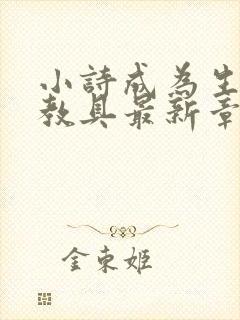 小詩成為生
教具最新章
金東姬